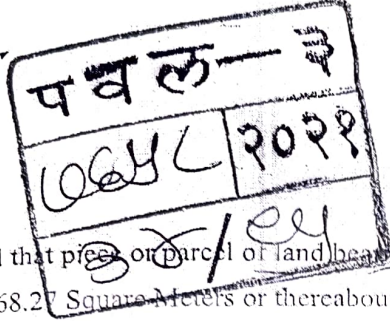 पवल — ३
७६५८ २०२१
३४/८५
l that piece or parcel of land bea
68.27 Square Meters or thereabou